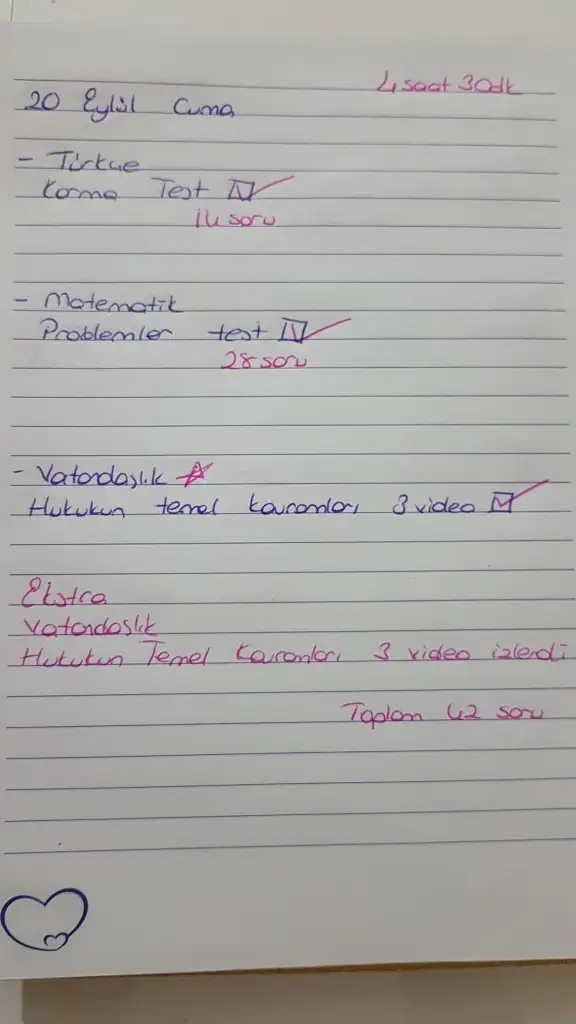 4 saat 30dk
20 Eylül Cuma
- Türkçe
Karma Test ✓
14 soru
- Matematik
Problemler test ✓
28 soru
- Vatandaşlık ☆
Hukukun temel kavramları 3 video ✓
Ekstra
Vatandaşlık
Hukukun Temel Kavramları 3 video izlendi
Toplam 42 soru